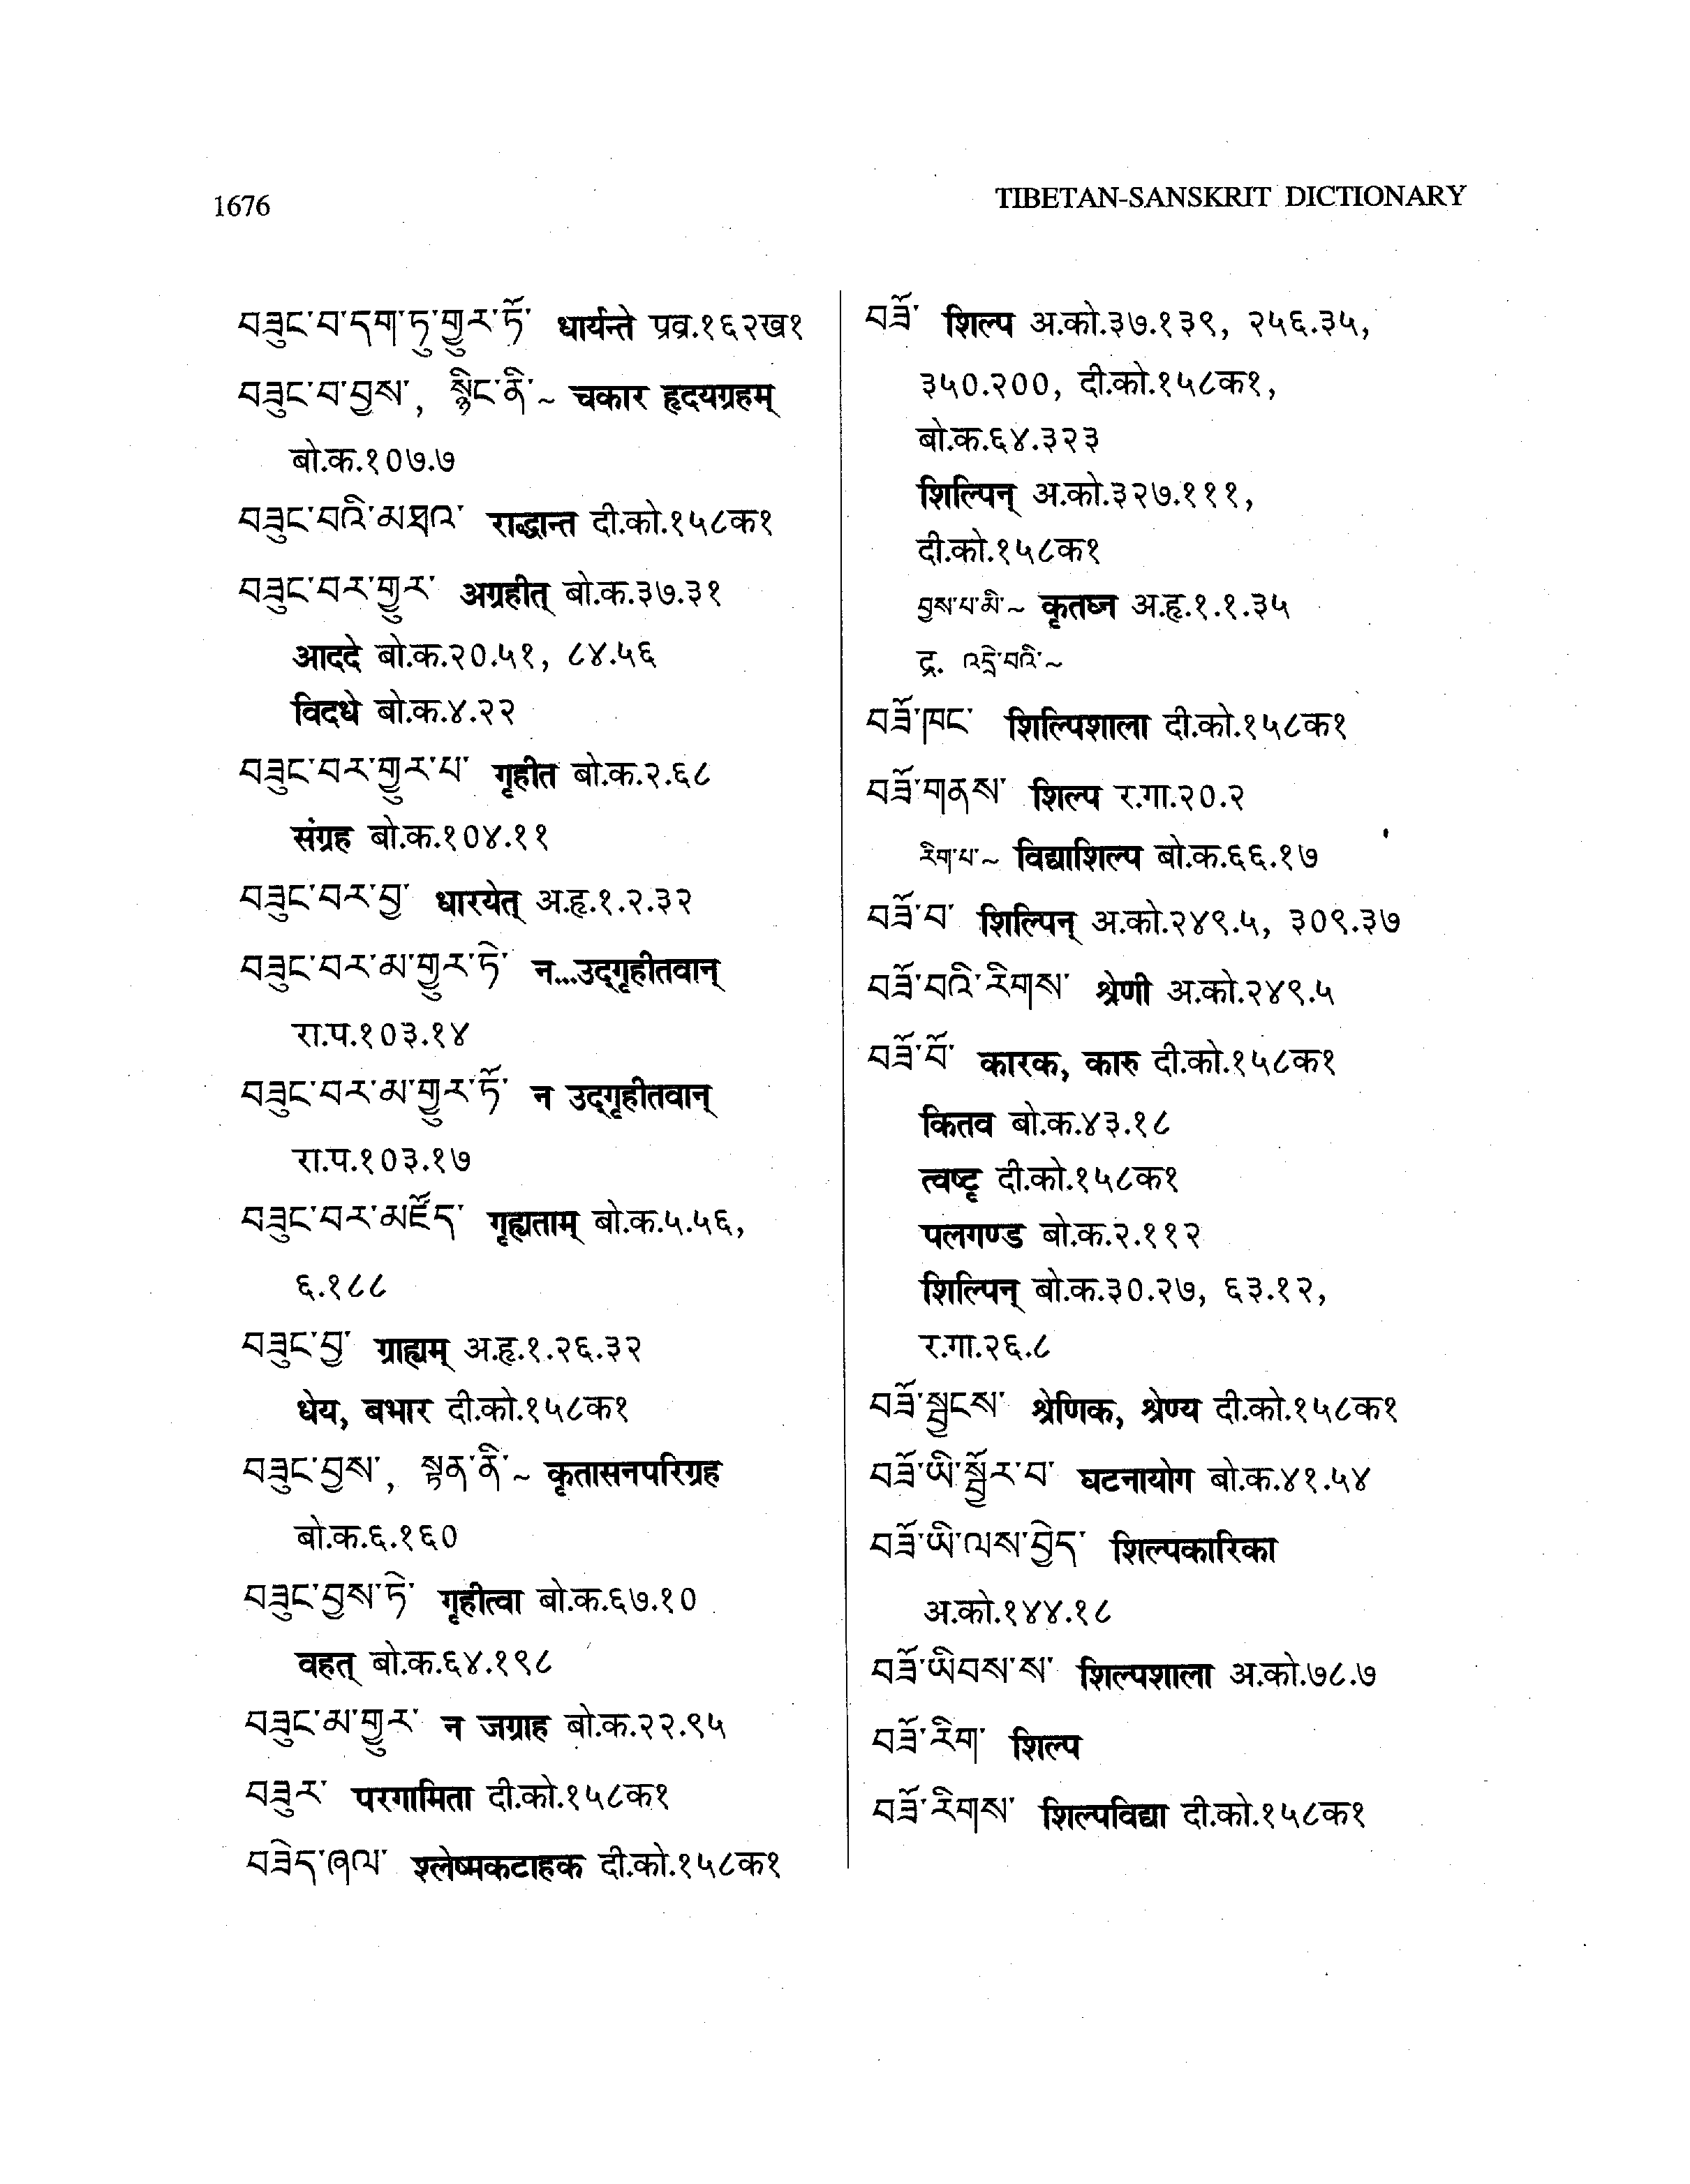 1676
TIBETAN-SANSKRIT DICTIONARY
བཟུང་བ་དག་ཏུ་གྱུར་ཏོ་ धार्यन्ते प्रव्र.१६२ख१
བཟུང་བ་བྱས་, སྙིང་ནི་~ चकार हृदयग्रहम्
बो.क.१०७.७
བཟུང་བའི་མཐའ་ राद्धान्त दी.को.१५८क१
བཟུང་བར་གྱུར་ अग्रहीत् बो.क.३७.३१
आददे बो.क.२०.५१, ८४.५६
विदधे बो.क.४.२२
བཟུང་བར་གྱུར་པ་ गृहीत बो.क.२.६८
संग्रह बो.क.१०४.११
བཟུང་བར་བྱ་ धारयेत् अ.हृ.१.२.३२
བཟུང་བར་མ་གྱུར་ཏེ་ न...उद्‌गृहीतवान्
रा.प.१०३.१४
བཟུང་བར་མ་གྱུར་ཏོ་ न उद्‌गृहीतवान्
रा.प.१०३.१७
བཟུང་བར་མཛོད་ गृह्यताम् बो.क.५.५६,
६.१८८
བཟུང་བྱ་ ग्राह्यम् अ.हृ.१.२६.३२
धेय, बभार दी.को.१५८क१
བཟུང་བྱས་, སྟན་ནི་~ कृतासनपरिग्रह
बो.क.६.१६०
བཟུང་བྱས་ཏེ་ गृहीत्वा बो.क.६७.१०
वहत् बो.क.६४.१९८
བཟུང་མ་གྱུར་ न जग्राह बो.क.२२.९५
བཟུར་ परगामिता दी.को.१५८क१
བཟེད་ཞལ་ श्लेष्मकटाहक दी.को.१५८क१
བཟོ་ शिल्प अ.को.३७.१३९, २५६.३५,
३५०.२००, दी.को.१५८क१,
बो.क.६४.३२३
शिल्पिन् अ.को.३२७.१११,
दी.को.१५८क१
བྱས་པ་མི་~ कृतघ्न अ.हृ.१.१.३५
द्र. འདྲེ་བའི་~
བཟོ་ཁང་ शिल्पिशाला दी.को.१५८क१
བཟོ་གནས་ शिल्प र.गा.२०.२
རིག་པ་~ विद्याशिल्प बो.क.६६.१७
བཟོ་བ་ शिल्पिन् अ.को.२४९.५, ३०९.३७
བཟོ་བའི་རིགས་ श्रेणी अ.को.२४९.५
བཟོ་བོ་ कारक, कारु दी.को.१५८क१
कितव बो.क.४३.१८
त्वष्टृ दी.को.१५८क१
पलगण्ड बो.क.२.११२
शिल्पिन् बो.क.३०.२७, ६३.१२,
र.गा.२६.८
བཟོ་སྦྱངས་ श्रेणिक, श्रेण्य दी.को.१५८क१
བཟོ་ཡི་སྦྱོར་བ་ घटनायोग बो.क.४१.५४
བཟོ་ཡི་ལས་བྱེད་ शिल्पकारिका
अ.को.१४४.१८
བཟོ་ཡིབས་ས་ शिल्पशाला अ.को.७८.७
བཟོ་རིག་ शिल्प
བཟོ་རིགས་ शिल्पविद्या दी.को.१५८क१